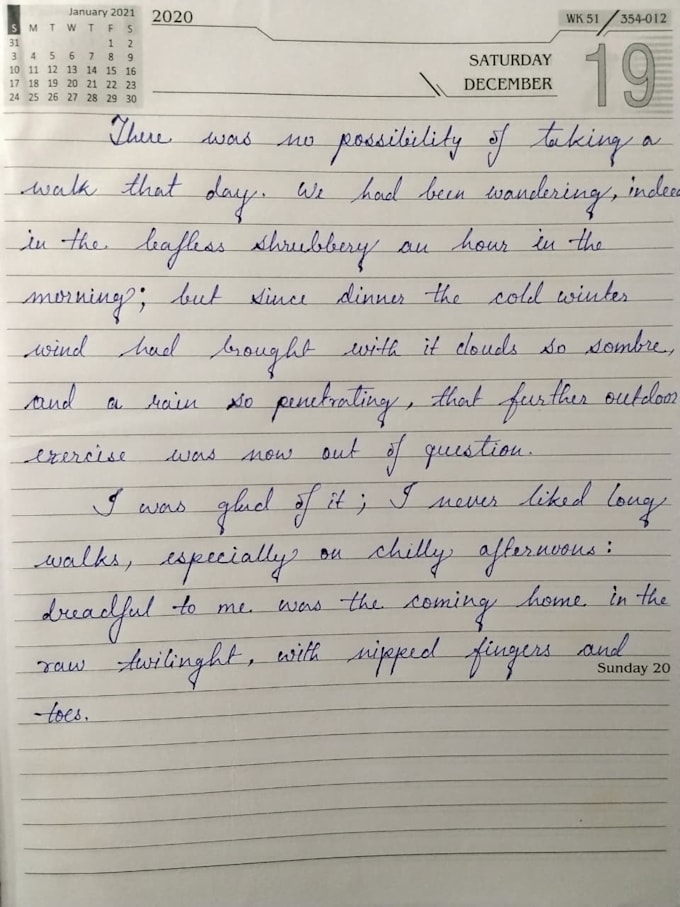 January 2021
S M T W T F S
31 1 2
3 4 5 6 7 8 9
10 11 12 13 14 15 16
17 18 19 20 21 22 23
24 25 26 27 28 29 30
2020
WK 51 / 354-012
SATURDAY
DECEMBER
19
There was no possibility of taking a
walk that day. We had been wandering, indeed
in the leafless shrubbery an hour in the
morning; but since dinner the cold winter
wind had brought with it clouds so sombre,
and a rain so penetrating, that further outdoor
exercise was now out of question.
I was glad of it; I never liked long
walks, especially on chilly afternoons:
dreadful to me was the coming home in the
raw twilinght, with nipped fingers and
Sunday 20
toes.